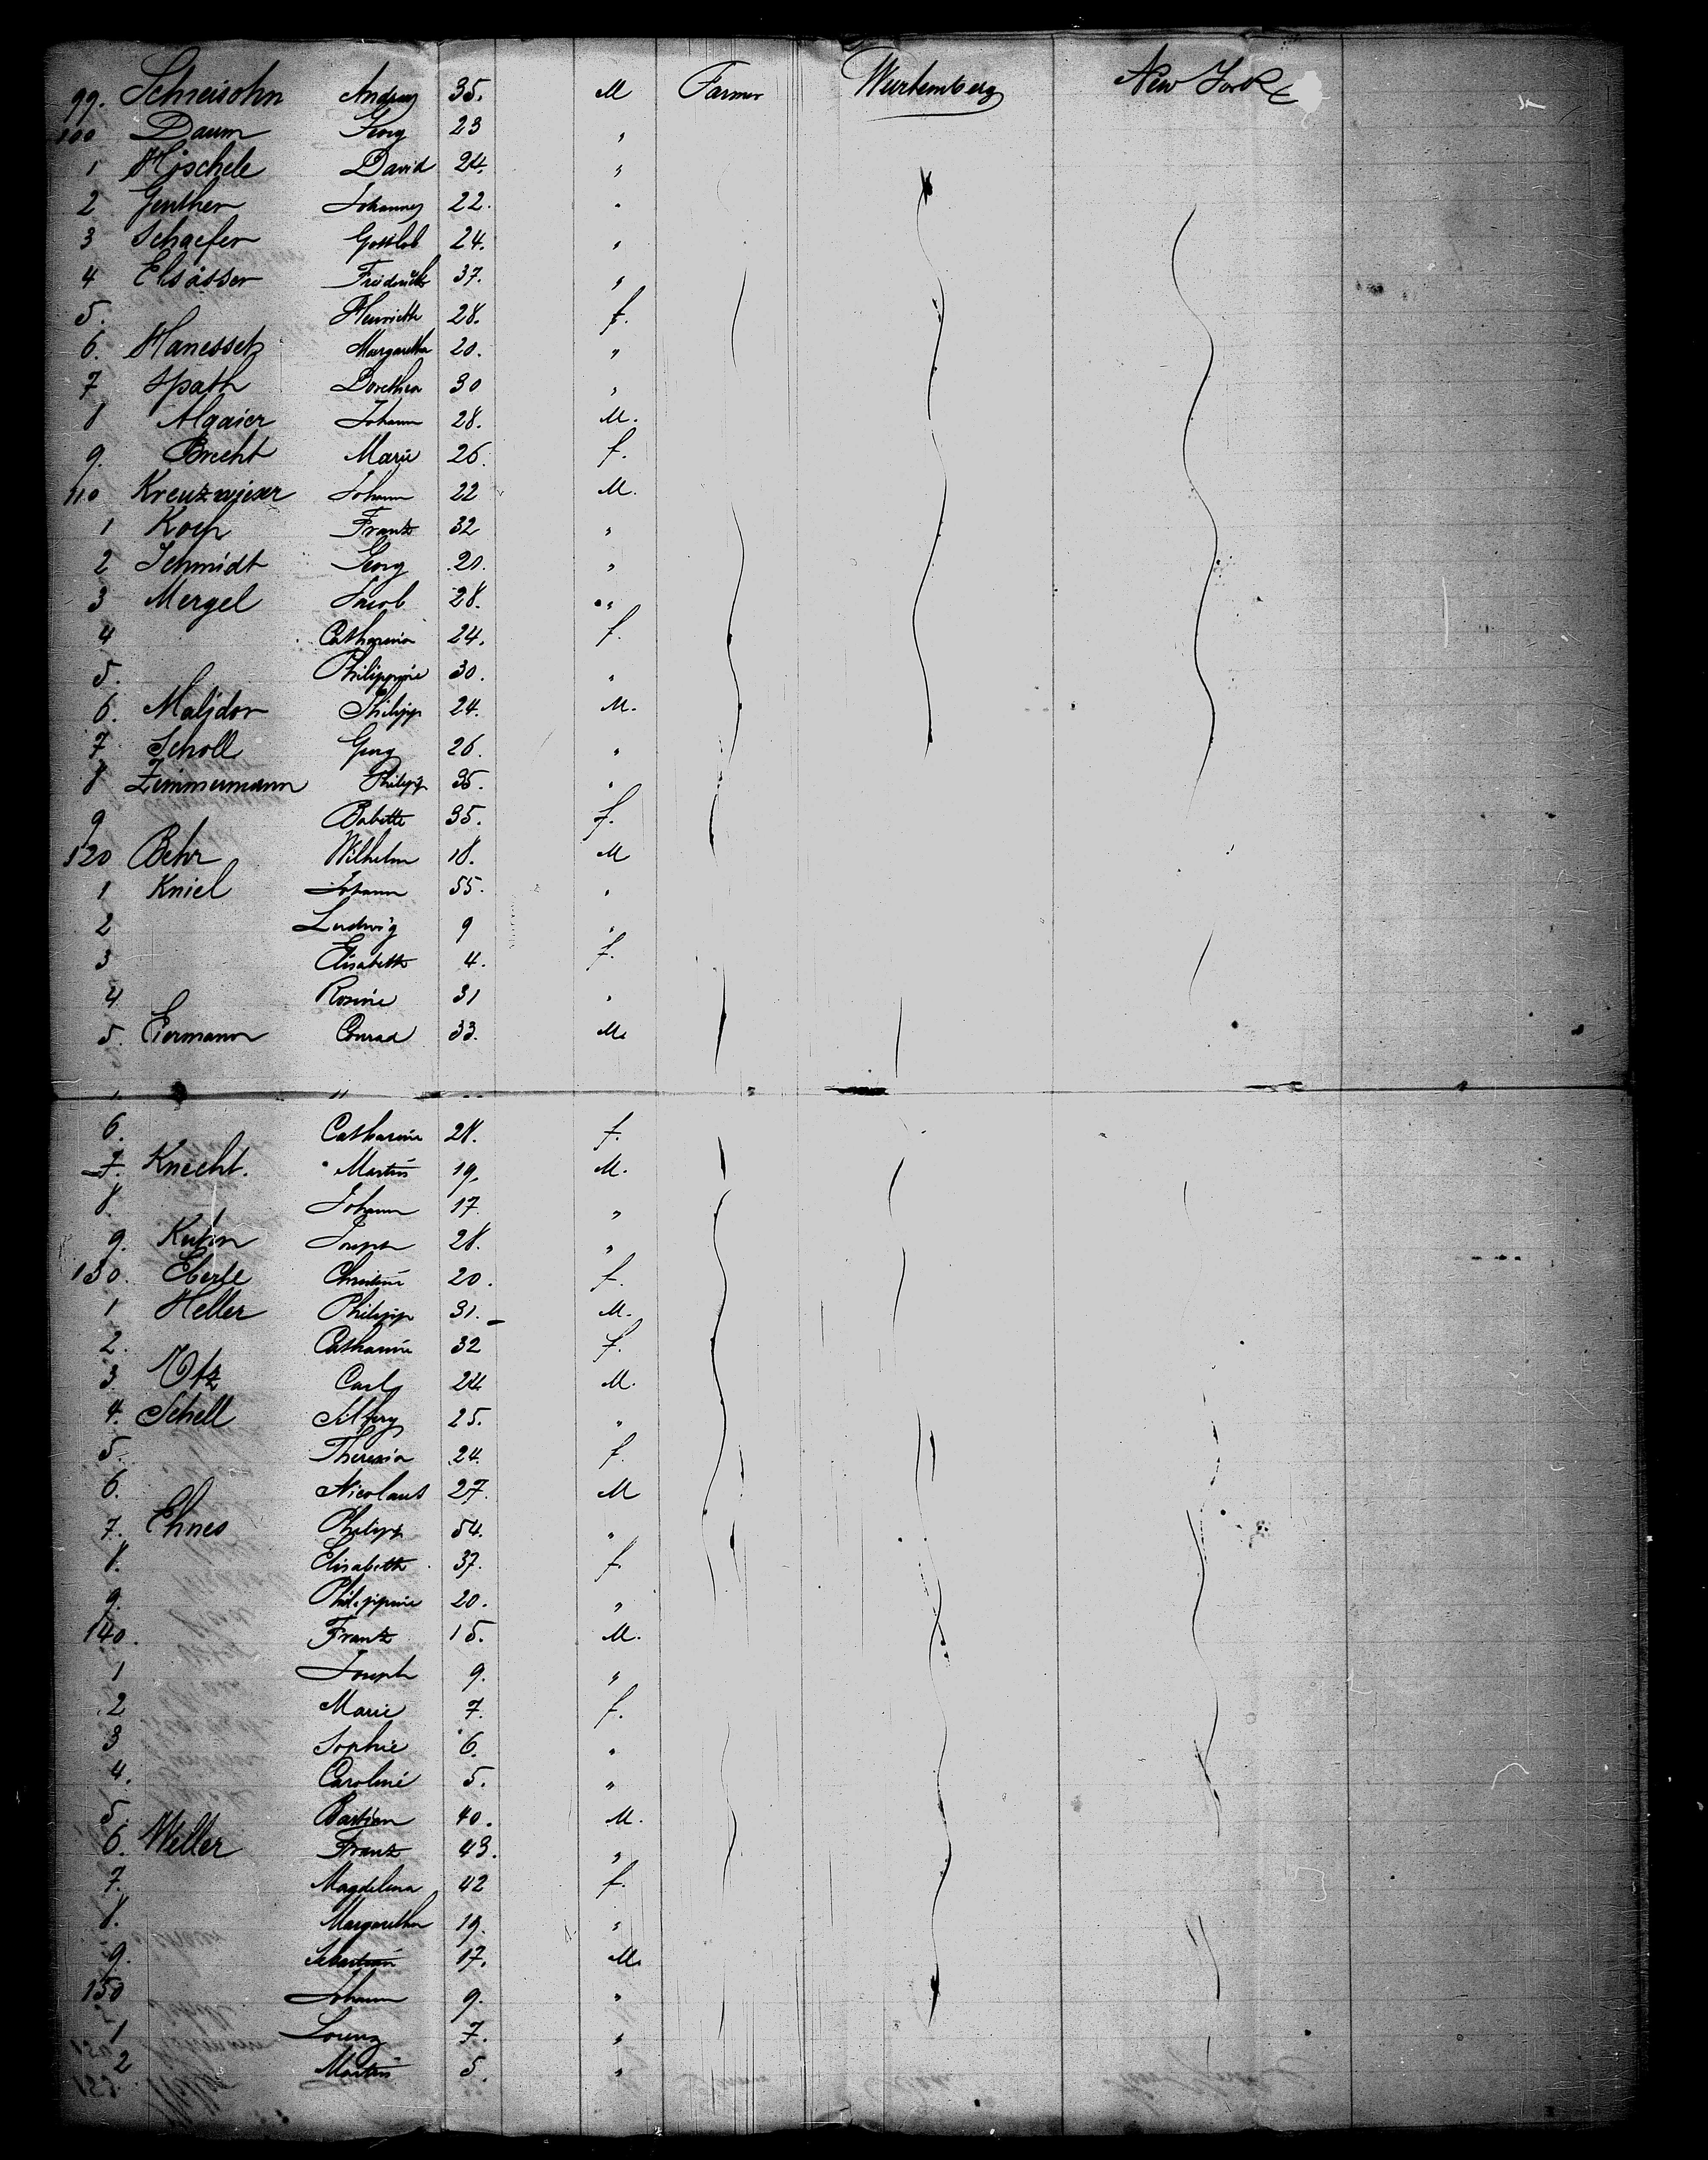 99. Schneisohn Andreas 35. M Farmer Wurtemberg New York
100 Daum Georg 23 "
1 Höschele David 24. "
2 Genther Johannes 22. "
3 Schaefer Gottlob 24. "
4 Elsässer Friederich 37. "
5. Henriette 28. f.
6. Hanesset Margaretha 20. "
7 Späth Dorethea 30 "
8 Algaier Johann 28. M.
9. Brecht Marie 26. f.
110 Kreuzwieser Johann 22 M.
1 Koch Franz 32 "
2 Schmidt Georg 21. "
3 Mergel Jacob 28. "
4 Catharina 24. f.
5. Philippine 30. "
6. Philipp 24. M.
7. Scholl Georg 26. "
8 Zimmermann Philipp 35. "
9 Babette 35. f.
120 Behr Wilhelm 18. M
1 Kniel Johann 55. "
2 Ludwig 9 "
3 Elisabeth 4. f.
4 Rosine 31 "
5. Eiermann Conrad 33. M.
6. Catharine 28. f.
7. Knecht. Martin 19. M.
8. Johann 17. "
9. Kuhn Joseph 28. "
130. Eberle Christine 20. f.
1 Heller Philipp 31. M.
2. Catharine 32 f.
3. Otz Carl 24 M.
4. Schell 25. "
5. Theresia 24. f.
6. Nicolaus 27. M
7. Ehnes Philipp 54. "
8. Elisabeth 37. f.
9. Philippine 20. "
140. Franz 15. M.
1 Joseph 9. "
2 Marie 7. f.
3 Sophie 6. "
4. Caroline 5. "
5. Bastian 40. M.
6. Weller Franz 43. "
7. Magdelena 42 f.
8. Margaretha 19. "
9. Sebastian 17. M.
150 Johann 9. "
1 Lorenz 7. "
2 Martin 5. "